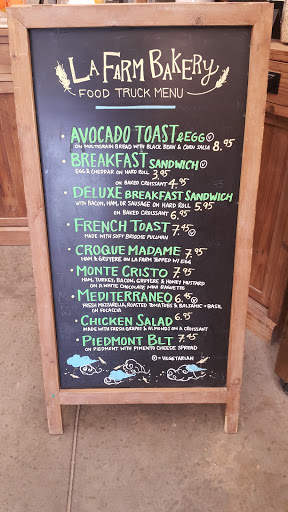 LA FARM BAKERY
FOOD TRUCK MENU
• AVOCADO TOAST & EGG Ⓥ
ON MULTIGRAIN BREAD WITH BLACK BEAN & CORN SALSA 8.95
• BREAKFAST SANDWICH Ⓥ
EGG & CHEDDAR ON HARD ROLL 3.95
ON BAKED CROISSANT 4.95
• DELUXE BREAKFAST SANDWICH
WITH BACON, HAM, OR SAUSAGE ON HARD ROLL 5.95
ON BAKED CROISSANT 6.95
• FRENCH TOAST 7.45 Ⓥ
MADE WITH SOFT BRIOCHE PULLMAN
• CROQUE MADAME 7.95
HAM & GRUYERE ON LA FARM TOPPED W/ EGG
• MONTE CRISTO 7.45
HAM, TURKEY, BACON, GRUYERE & HONEY MUSTARD
ON A WHITE CHOCOLATE MINI BAGUETTE
• MEDITERRANEO 6.45 Ⓥ
FRESH MOZZARELLA, ROASTED TOMATOES & BALSAMIC + BASIL
ON FOCACCIA
• CHICKEN SALAD 6.95
MADE WITH FRESH GRAPES & ALMONDS ON A CROISSANT
• PIEDMONT BLT 7.45
ON PIEDMONT WITH PIMENTO CHEESE SPREAD
Ⓥ = VEGETARIAN